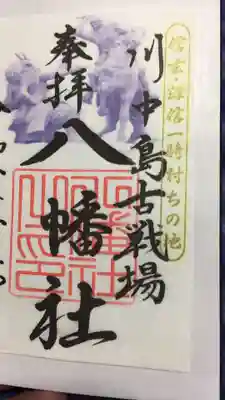 信玄・謙信一騎討ちの地
川中島古戦場
奉拝
八幡社